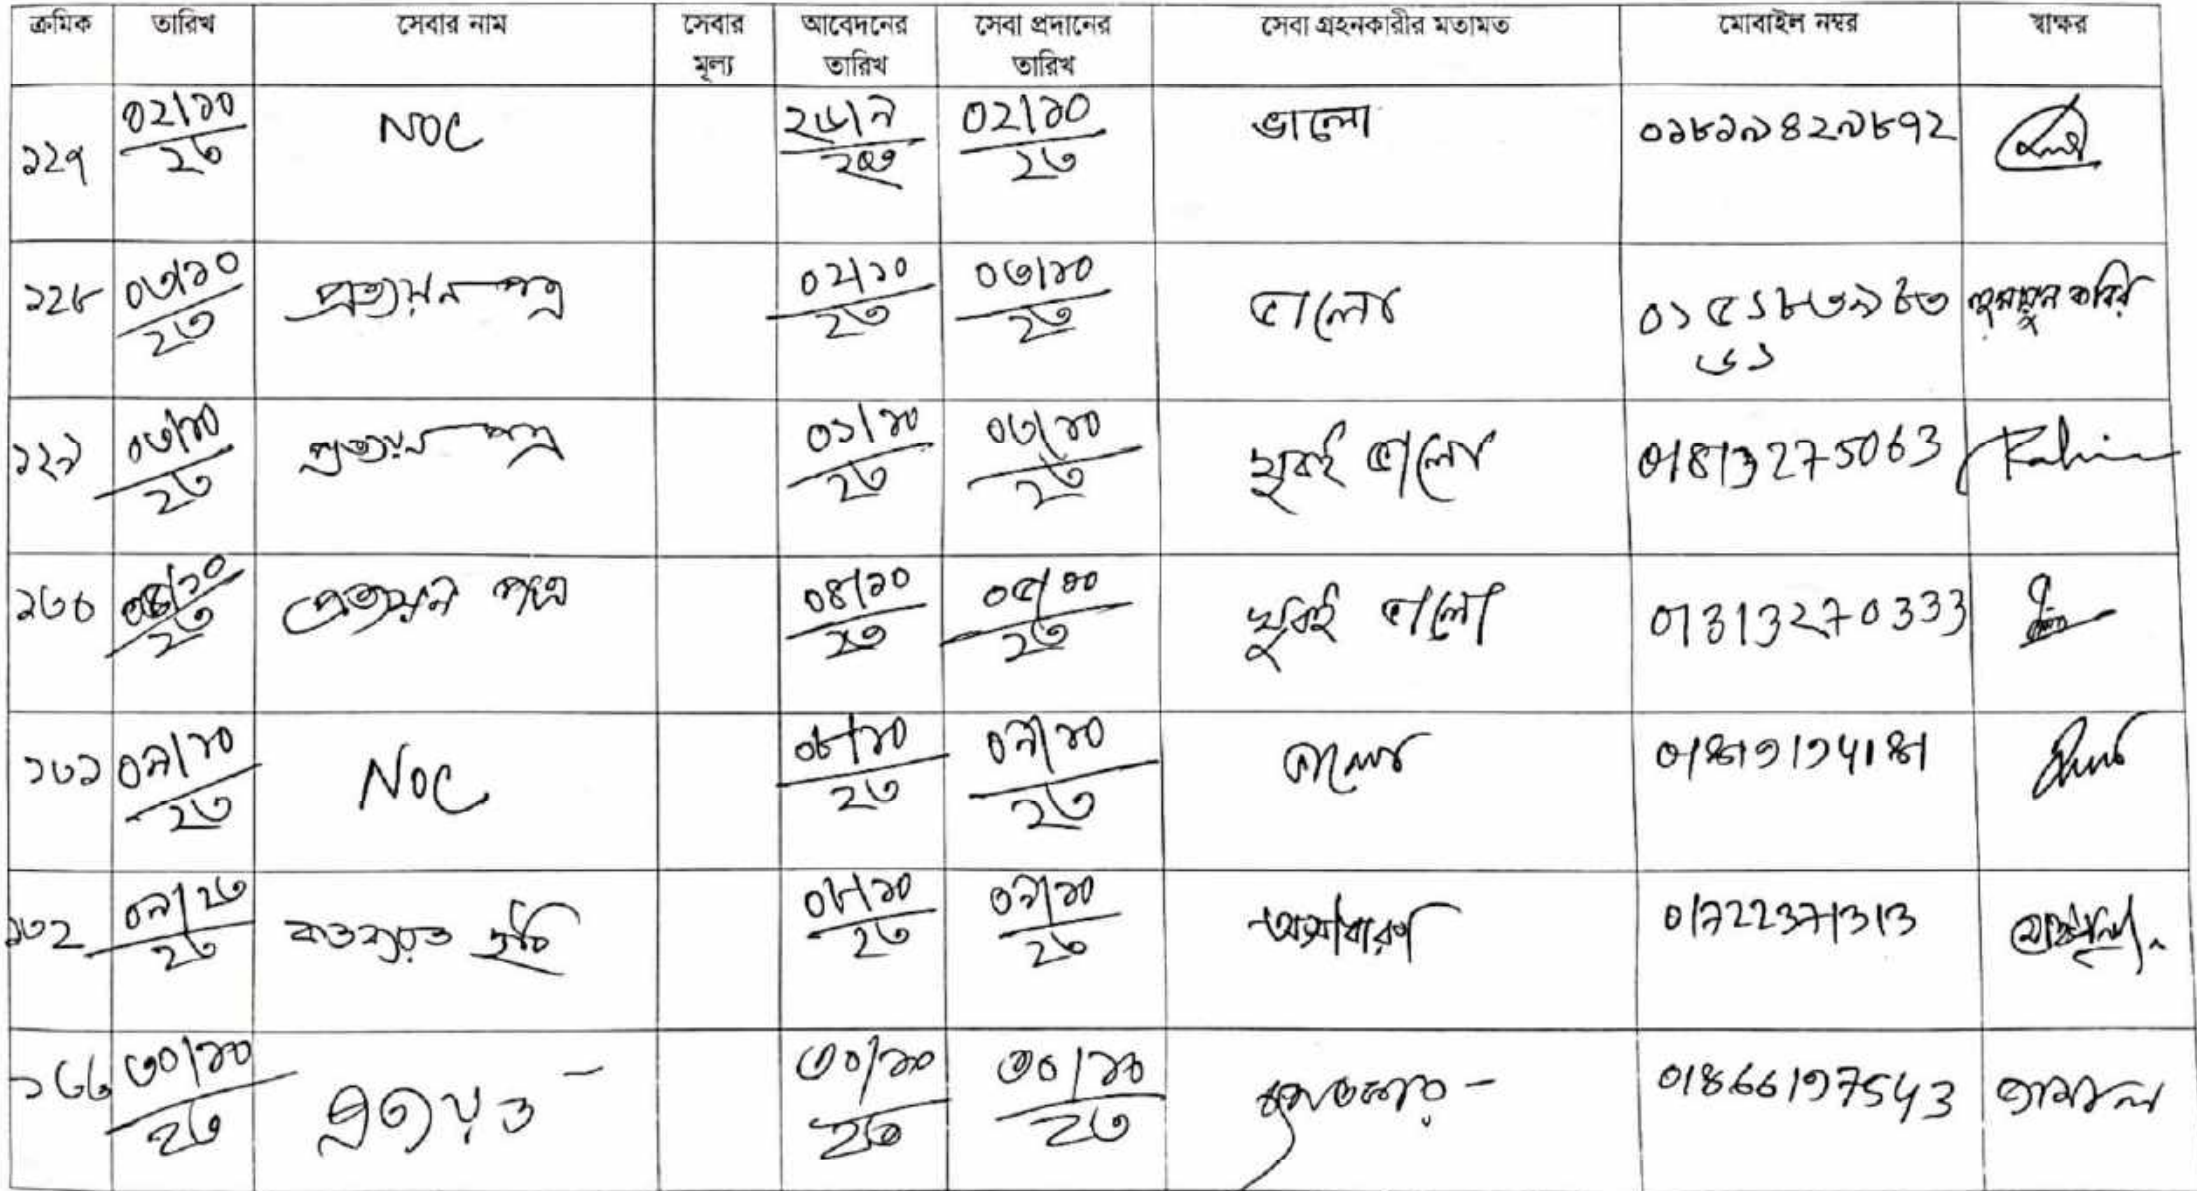 ক্রমিক তারিখ সেবার নাম সেবার মূল্য আবেদনের তারিখ সেবা প্রদানের তারিখ সেবা গ্রহনকারীর মতামত মোবাইল নম্বর স্বাক্ষর
১২৭ ০২/১০/২৩ NOC ০২/১০/২৩ ভালো ০১৮১৯৪২৯৮৭২
১২৮ ০৩/১০/২৩ প্রত্যয়ন পত্র ০২/১০/২৩ ০৩/১০/২৩ ভালো হুমায়ুন কবির
১২৯ ০৩/১০/২৩ প্রত্যয়ন পত্র ০১/১০/২৩ ০৩/১০/২৩ খুবই ভালো 01813275063
১৩০ প্রত্যয়ন পত্র ০৪/১০/২৩ ০৫/১০/২৩ খুবই ভালো 01313270333
১৩১ ০৯/১০/২৩ NOC ০৮/১০/২৩ ০৯/১০/২৩ ভালো
১৩২ ০৯/২৩/২৩ ০৮/১০/২৩ ০৯/১০/২৩ অসাধারণ 01722371313
১৩৩ ৩০/১০/২৩ ৩০/১০/২৩ ৩০/১০/২৩ 01866197543